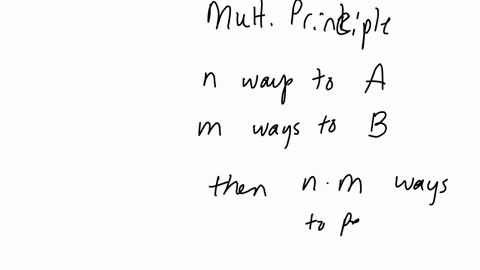 Mult. Principle
n ways to A
m ways to B
then n · m ways
to pe